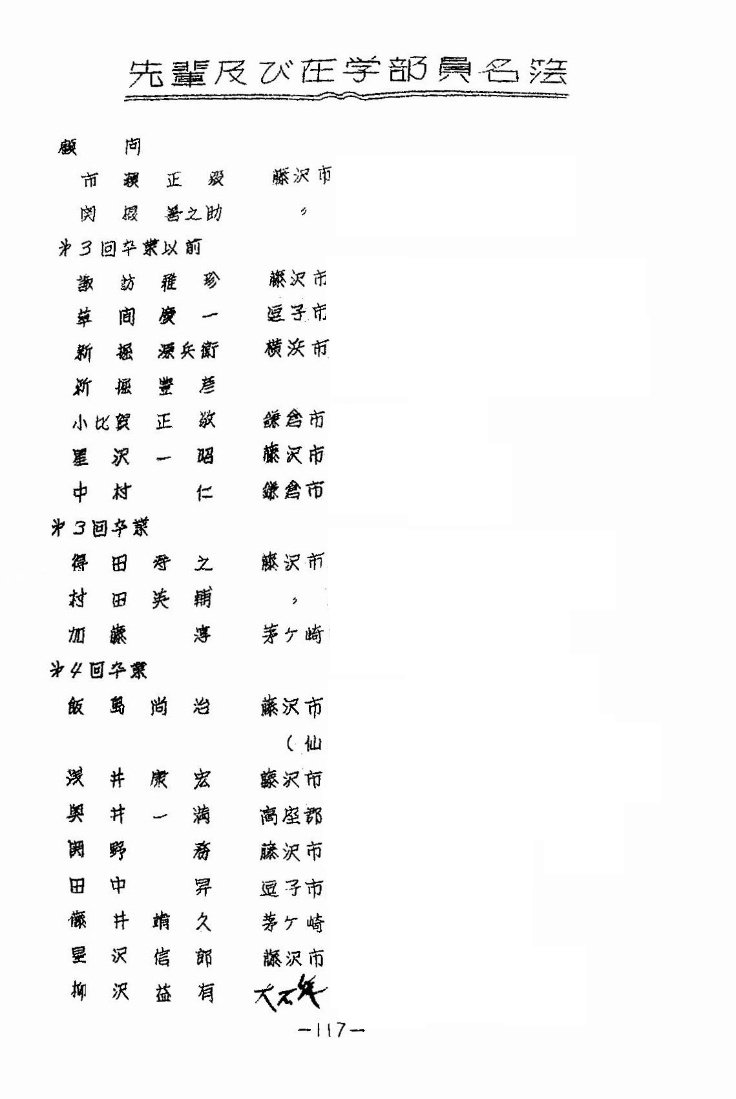 先輩及び在学部員名簿
顧問
市瀬正毅 藤沢市
関根善之助 〃
第3回卒業以前
諏訪雅珍 藤沢市
草間慶一 逗子市
新堀源兵衛 横浜市
新堀豊彦
小比賀正敬 鎌倉市
星沢一昭 藤沢市
中村仁 鎌倉市
第3回卒業
得田孝之 藤沢市
村田英輔 〃
加藤淳 茅ケ崎
第4回卒業
飯島尚治 藤沢市
(仙
浅井康宏 藤沢市
奥井一満 高座郡
関野務 藤沢市
田中昇 逗子市
藤井靖久 茅ケ崎
星沢信郎 藤沢市
柳沢益有
-117-